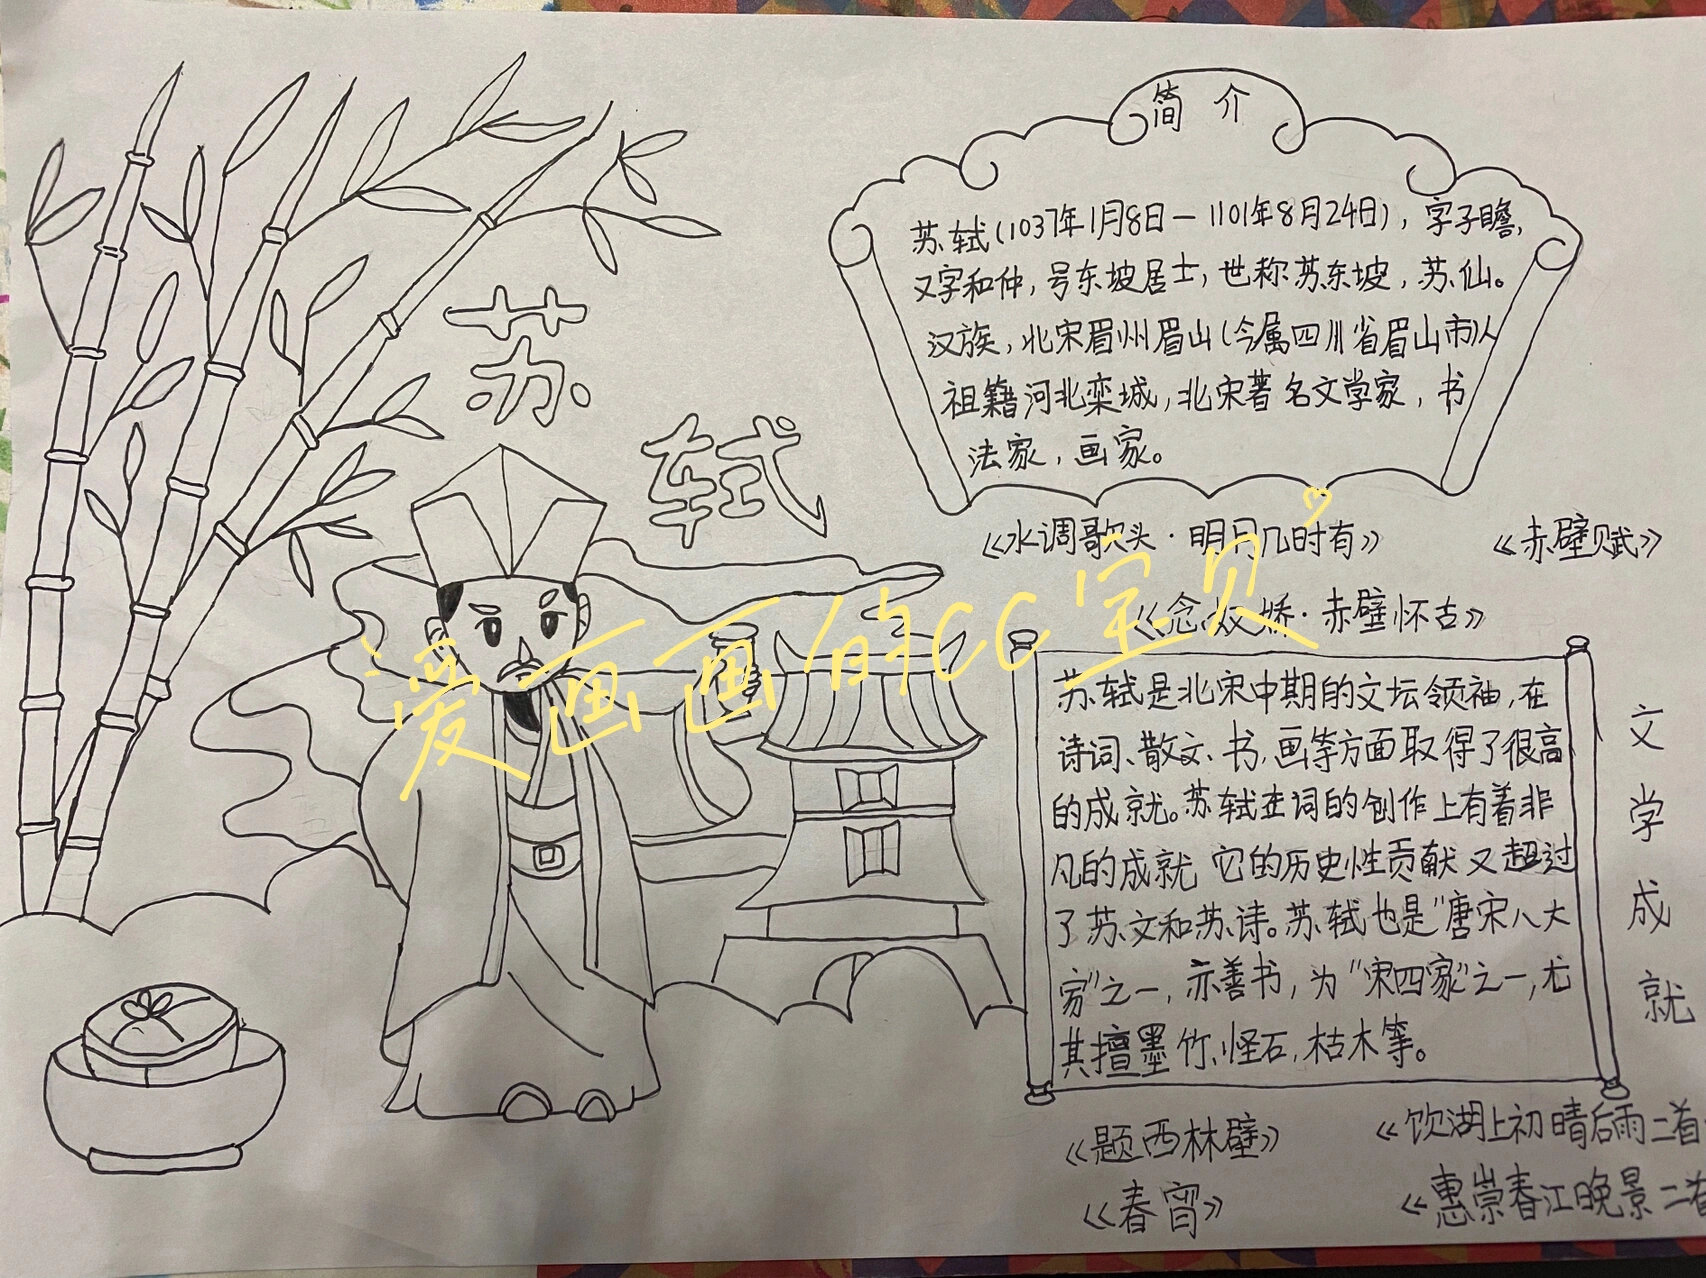 苏轼
简介
苏轼(1037年1月8日—1101年8月24日)，字子瞻，
又字和仲，号东坡居士，世称苏东坡，苏仙。
汉族，北宋眉州眉山(今属四川省眉山市)人
祖籍河北栾城，北宋著名文学家，书
法家，画家。
《水调歌头·明月几时有》 《赤壁赋》
《念奴娇·赤壁怀古》
爱画画的CC宝贝
苏轼是北宋中期的文坛领袖，在
诗词、散文、书、画等方面取得了很高
的成就。苏轼在词的创作上有着非
凡的成就 它的历史性贡献又超过
了苏文和苏诗。苏轼也是"唐宋八大
家"之一，亦善书，为"宋四家"之一，尤
其擅墨竹、怪石，枯木等。
文学成就
《题西林壁》 《饮湖上初晴后雨二首
《春宵》 《惠崇春江晚景二首